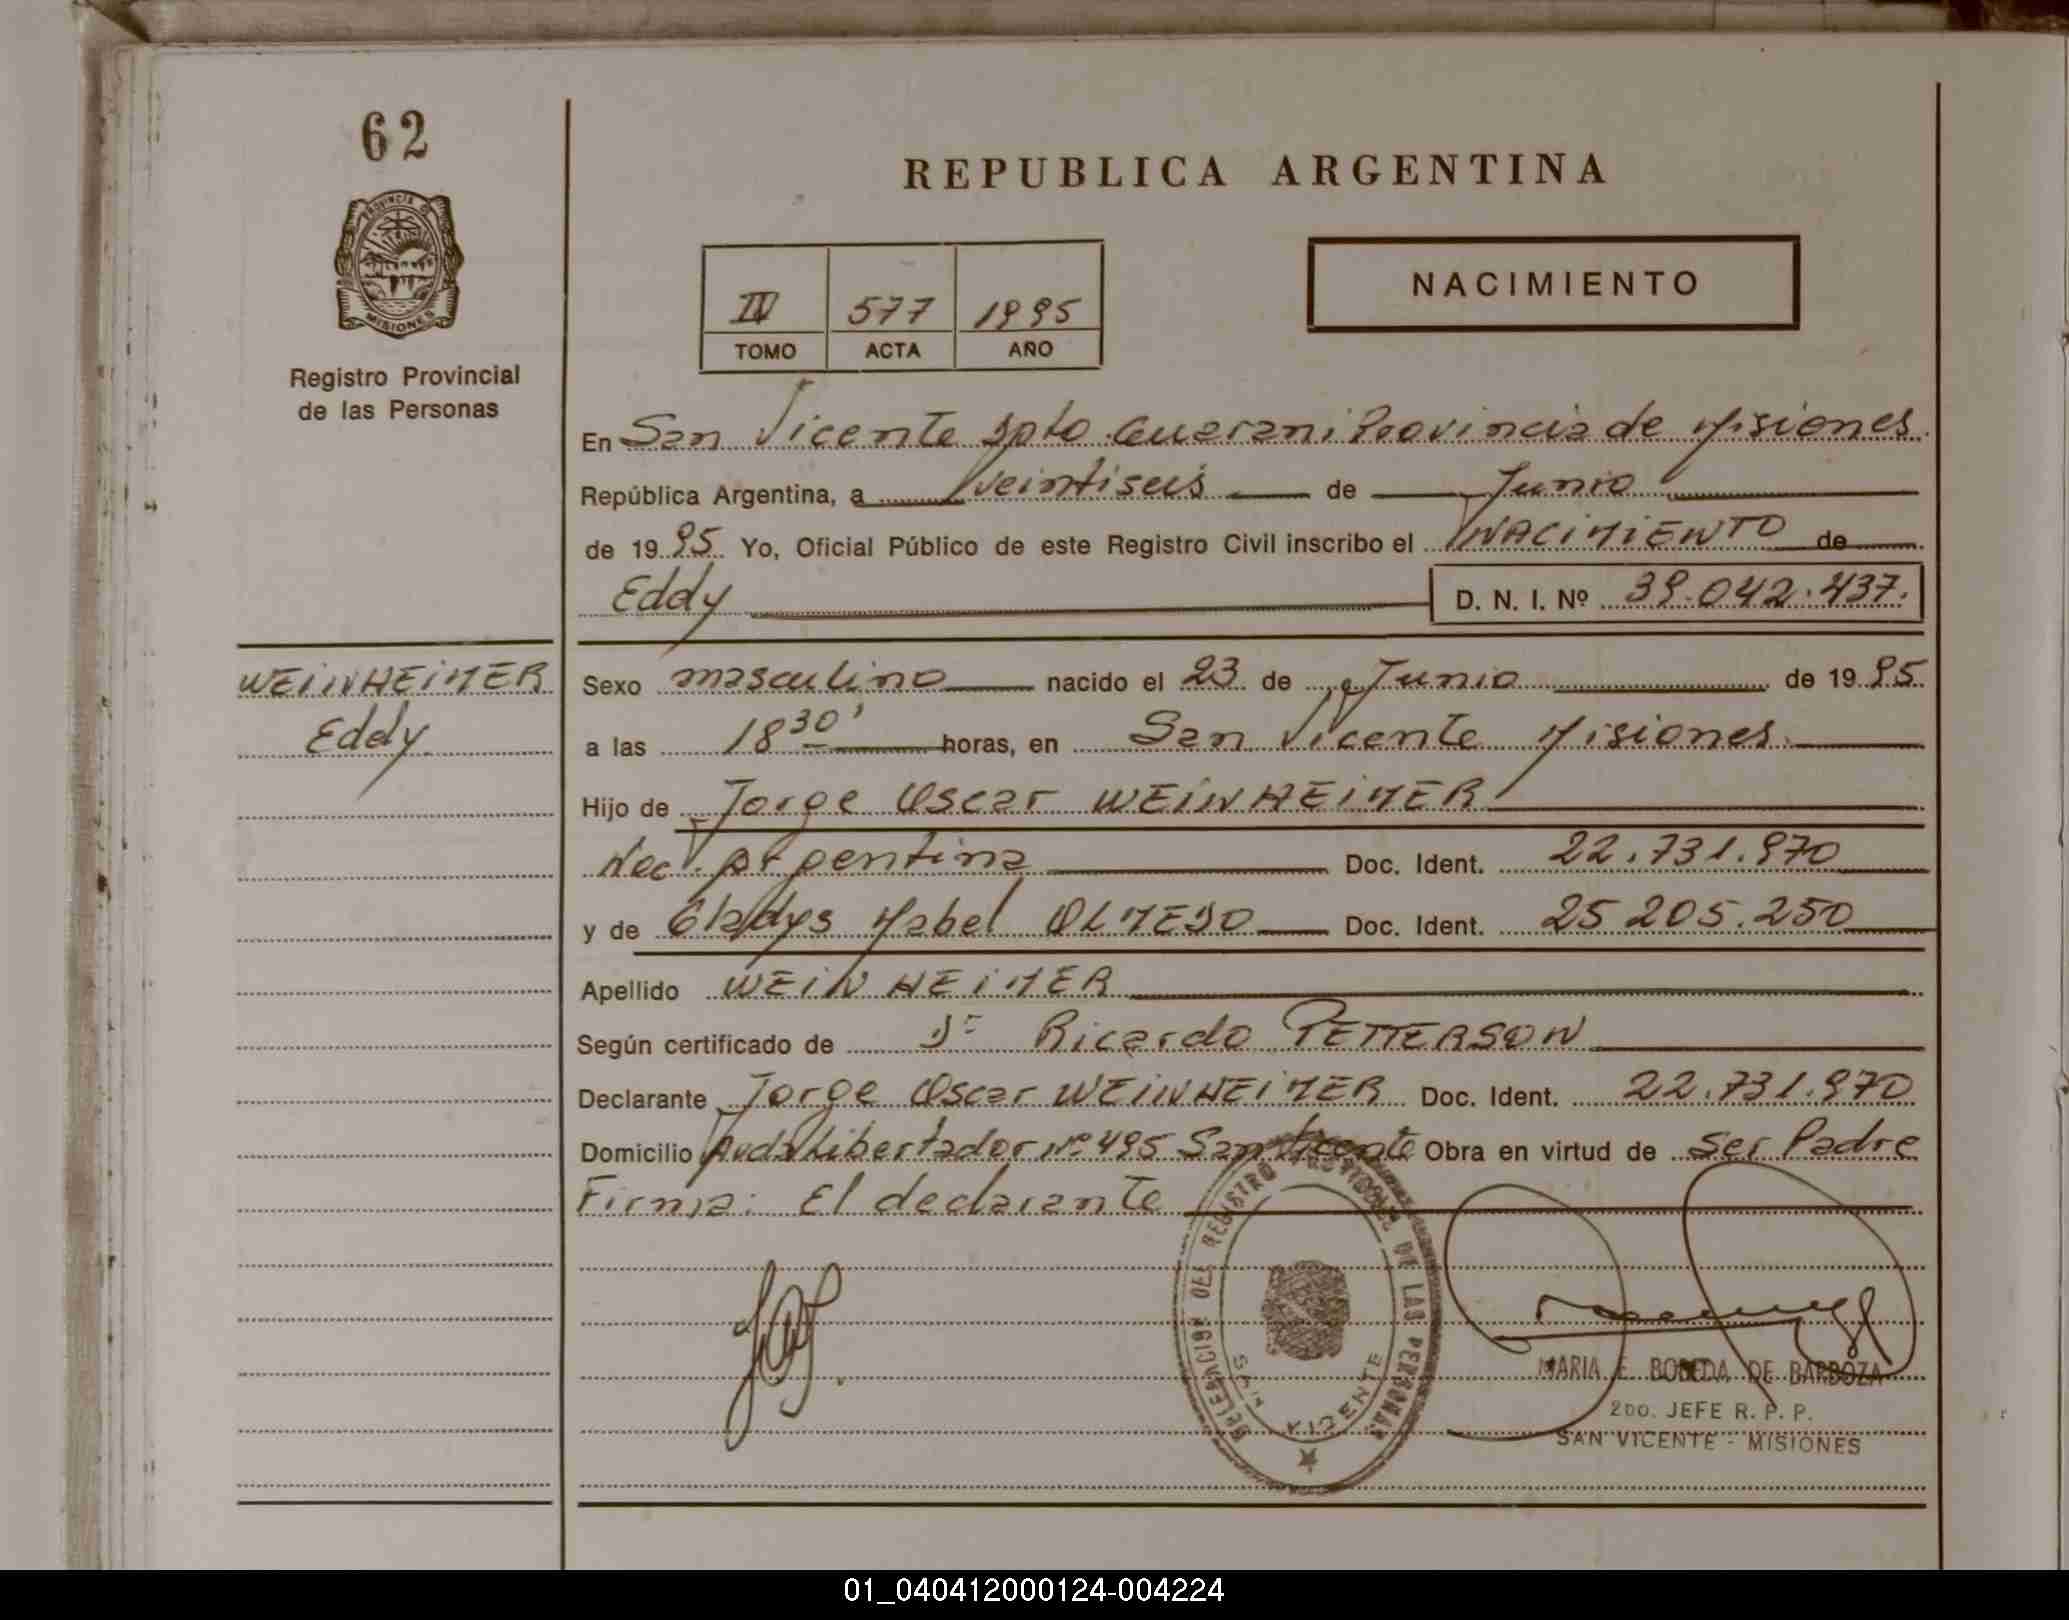 62
PROVINCIA DE
MISIONES
Registro Provincial
de las Personas
REPUBLICA ARGENTINA
IV 577 1995
TOMO ACTA AÑO
NACIMIENTO
En San Vicente Dpto. Guarani Provincia de Misiones.
República Argentina, a Veintiseis de Junio
de 1995 Yo, Oficial Público de este Registro Civil inscribo el NACIMIENTO de
Eddy D. N. I. Nº 39.042.437.
WEINHEIMER
Eddy
Sexo masculino nacido el 23 de Junio de 1995
a las 18 30' horas, en San Vicente Misiones.
Hijo de Jorge Oscar WEINHEIMER
Nac. Argentina Doc. Ident. 22.731.970
y de Gladys Mabel OLMEDO Doc. Ident. 25 205.250
Apellido WEINHEIMER
Según certificado de Dr Ricardo PETTERSON
Declarante Jorge Oscar WEINHEIMER Doc. Ident. 22.731.970
Domicilio Avda Libertador Nº 495 San Vicente Obra en virtud de Ser Padre
Firma: El declarante
DELEGACION DEL REGISTRO PROVINCIAL DE LAS PERSONAS
SAN VICENTE
MARIA E. BOBEDA DE BARBOZA
2DO. JEFE R. P. P.
SAN VICENTE - MISIONES
01_040412000124-004224